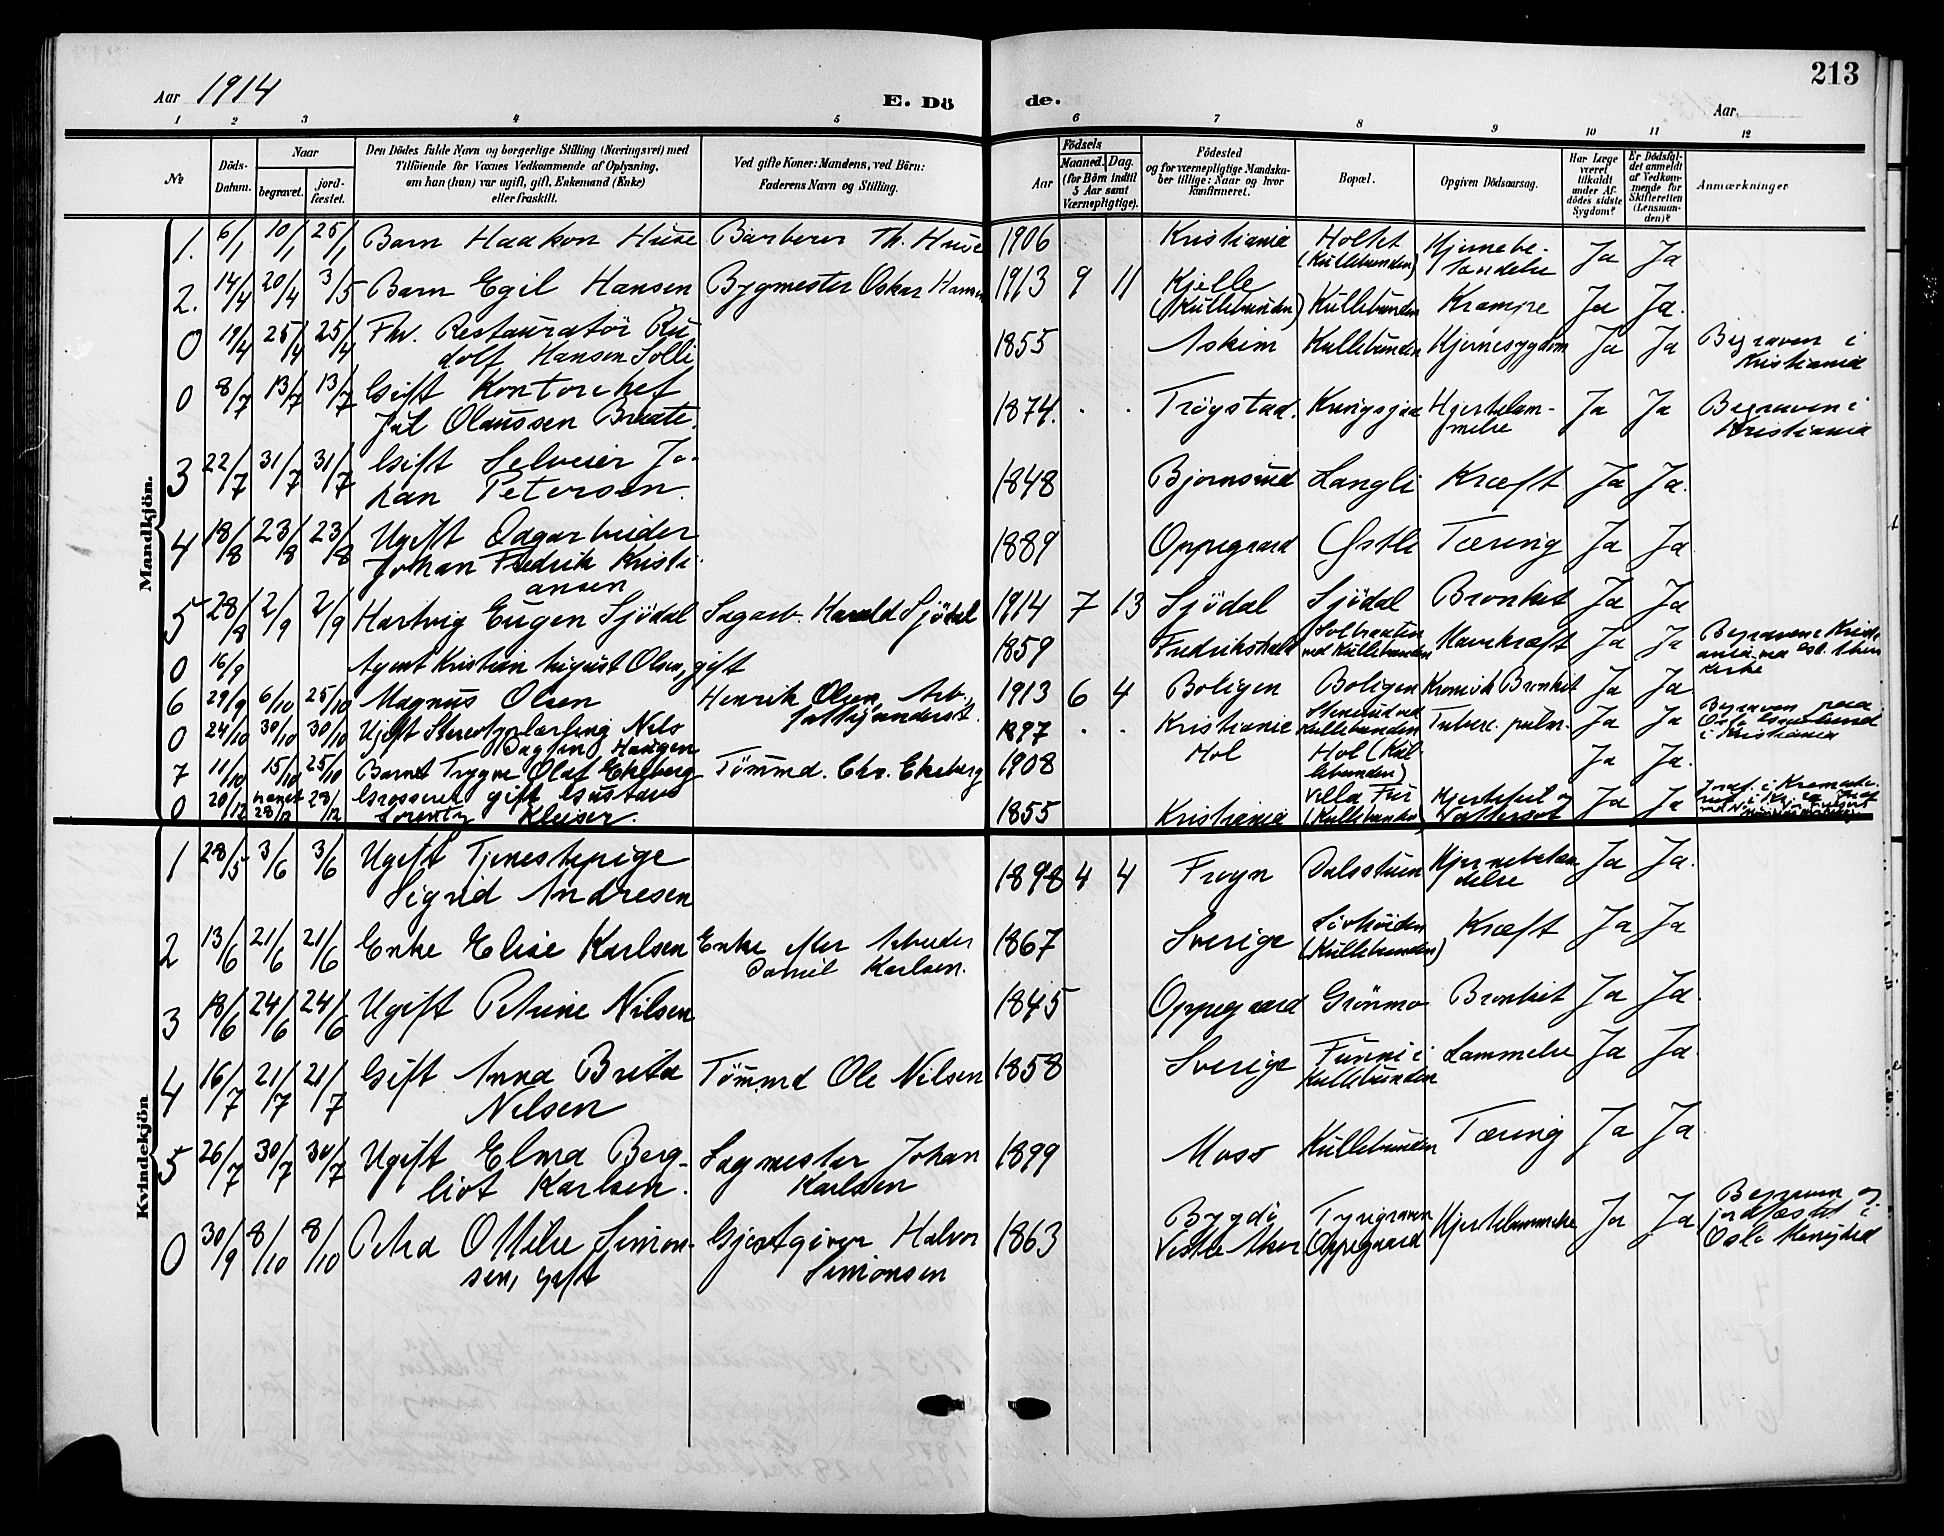 213
Aar 1914
E. Dö
de.
Aar
1 2 3 4 5 6 7 8 9 10 11 12
№
Döds-
Datum.
Naar
begravet.
jord-
fæstet.
Den Dödes fulde Navn og borgerlige Stilling (Næringsvei) med
Tilföiende for Voxnes Vedkommende af Oplysning,
om han (hun) var ugift, gift, Enkemand (Enke)
eller fraskilt.
Ved gifte Koner: Mandens, ved Börn:
Faderens Navn og Stilling.
Födsels
Aar
Maaned. Dag.
(for Börn indtil
5 Aar samt
Værnepligtige).
Födested
og for værnepligtige Mandska-
ber tillige: Naar og hvor
konfirmeret.
Bopæl.
Opgiven Dödsaarsag.
Har Læge
været
tilkaldt
under Af-
dödes sidste
Sygdom?
Er Dödsfal-
det anmeldt
af Vedkom-
mende for
Skifteretten
(Lensman-
den)?
Anmærkninger
Mandkjön.
1. 6/1 10/1 25/1 Barn Haakon Huse Barberer Th. Huse 1906 Kristiania Holtet (Kullebunden) Hjernebe-
tændelse Ja Ja
2. 14/4 20/4 3/5 Barn Egil Hansen Bygmester Oskar Hansen 1913 9 11 Kjelle
(Kullebunden) Kullebunden Krampe Ja Ja.
0 19/4 25/4 25/4 Fhv. Restauratør Ru-
dolf Hansen Solli 1855 Askim Kullebunden Hjernesygdom Ja Ja Begraven i
Kristiania
0 8/7 13/7 13/7 Gift Kontorchef
Jul Olaussen Braate. 1874. Trøgstad. Kongsgaa Hjertelam-
melse Ja Ja Begraven i
Kristiania
3 22/7 31/7 31/7 Gift Selveier Jo-
han Petersen. 1848 Bjørnsund Langli Kræft Ja Ja.
4 18/8 23/8 23/8 Ugift Dagarbeider
Johan Fredrik Kristi-
ansen 1889 Oppegaard Østli Tæring Ja Ja
5 28/8 2/9 2/9 Hartvig Eugen Sjödal Sagarb. Harald Sjödal 1914 7 13 Sjödal Sjödal Bronkit Ja Ja
0 16/9 Agent Kristian August Olsen, gift 1859 Fredrikshald Solbraaten
ved Kullebunden Mavekræft Ja Ja Begraven i Kristi-
ania ved Østre Aker
kirke
6 29/9 6/10 25/10 Magnus Olsen Henrik Olsen, Arb.,
fattigunderst. 1913 6 4 Boligen Boligen Kronisk Bronkit Ja Ja
0 24/10 30/10 30/10 Ugift Stereotyplærling Nils
Dagfin Haugen 1897 Kristiania Stenerud ved
Kullebunden Tuberc. pulm. Ja Ja Begraven paa
Oslo
i Kristiania
7 11/10 15/10 25/10 Barnet Trygve Olaf Ekeberg Tömmd. Chr. Ekeberg 1908 Hol Hol (Kul-
lebunden) Ja Ja.
0 20/12 brændt 28/12 28/12 Grosserer gift Gustav
Lorentz Kleiser. 1855 Kristiania Villa Fur
(Kullebunden) Hjertefeil og
Vattersot Ja Ja
Kvindekjön
1 28/5 3/6 3/6 Ugift Tjenestepige
Sigrid Andresen 1898 4 4 Frogn Dalsstuen Hjernebetæn-
delse Ja Ja.
2 13/6 21/6 21/6 Enke Elise Karlsen Enke efter Arbeider
Daniel Karlsen. 1867 Sverige Sivhøiden
(Kullebunden) Kræft Ja Ja
3 18/6 24/6 24/6 Ugift Petrine Nilsen 1845 Oppegaard Grönmo Bronkit Ja Ja.
4 16/7 21/7 21/7 Gift Anna Brita
Nilsen Tömmd Ole Nilsen 1858 Sverige Furu i
Kullebunden Lammelse Ja Ja.
5 26/7 30/7 30/7 Ugift Elma Berg-
liot Karlsen. Sagmester Johan
Karlsen 1899 Moss Kullebunden Tæring Ja Ja.
0 30/9 8/10 8/10 Petra Ottilie Simon-
sen, gift Gjestgiver Halvor
Simonsen 1863 Bygdö
Vestre Aker Tyrigraven
Oppegaard Hjertelammelse Ja Ja Begraven og
jordfæstet i
Oslo Menighed